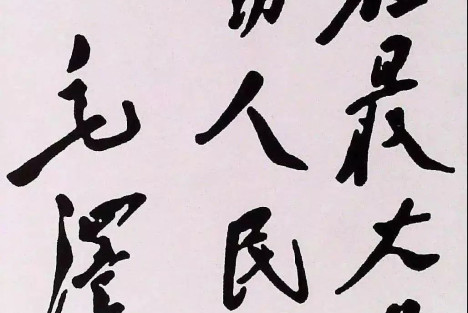 在最大
人民
毛澤